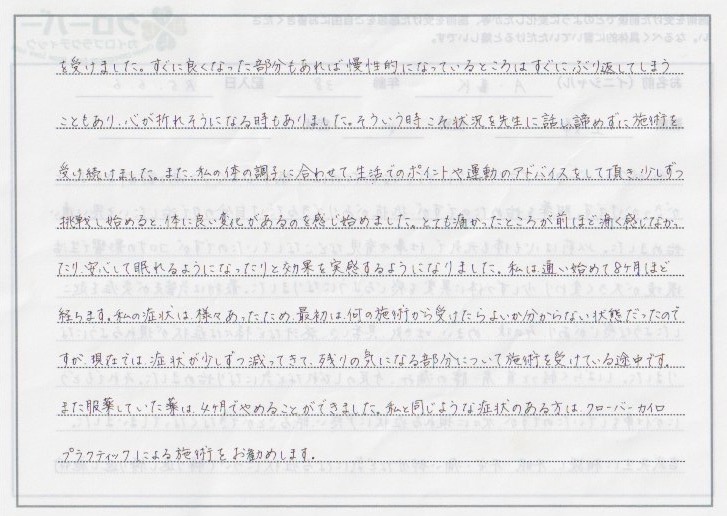 を受けました。すぐに良くなった部分もあれば慢性的になっているところはすぐにぶり返してしまう
こともあり、心が折れそうになる時もありました。そういう時こそ状況を先生に話し諦めずに施術を
受け続けました。また、私の体の調子に合わせて、生活でのポイントや運動のアドバイスをして頂き、少しずつ
挑戦し始めると、体に良い変化があるのを感じ始めました。とても痛かったところが前ほど痛く感じなかっ
たり、安心して眠れるようになったりと効果を実感するようになりました。私は通い始めて8ヶ月ほど
経ちます。私の症状は様々あったため、最初は何の施術から受けたらよいか分からない状態だったので
すが、現在では、症状が少しずつ減ってきて、残りの気になる部分について施術を受けている途中です。
また服薬していた薬は、4ヶ月でやめることができました。私と同じような症状のある方は、クローバーカイロ
プラクティックによる施術をお勧めします。